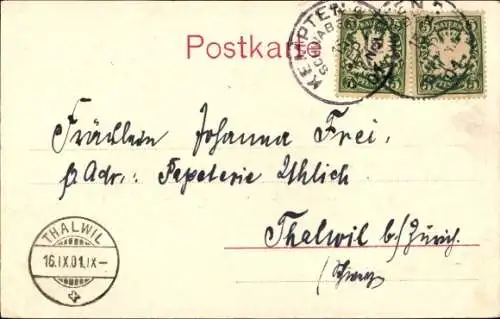 Postkarte
KEMPTEN
SCHWABEN
BAYERN
Fräulein Johanna Frei,
p Adr.: Papeterie Uhlich
Thalwil b/ Zürich.
(Schweiz
THALWIL
16.IX.01.IX-